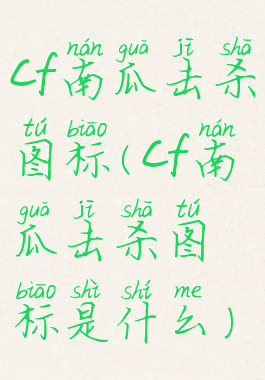 nán guā jī shā
cf南瓜击杀
tú biāo nán
图标(cf南
guā jī shā tú
瓜击杀图
biāo shì shí me
标是什么)